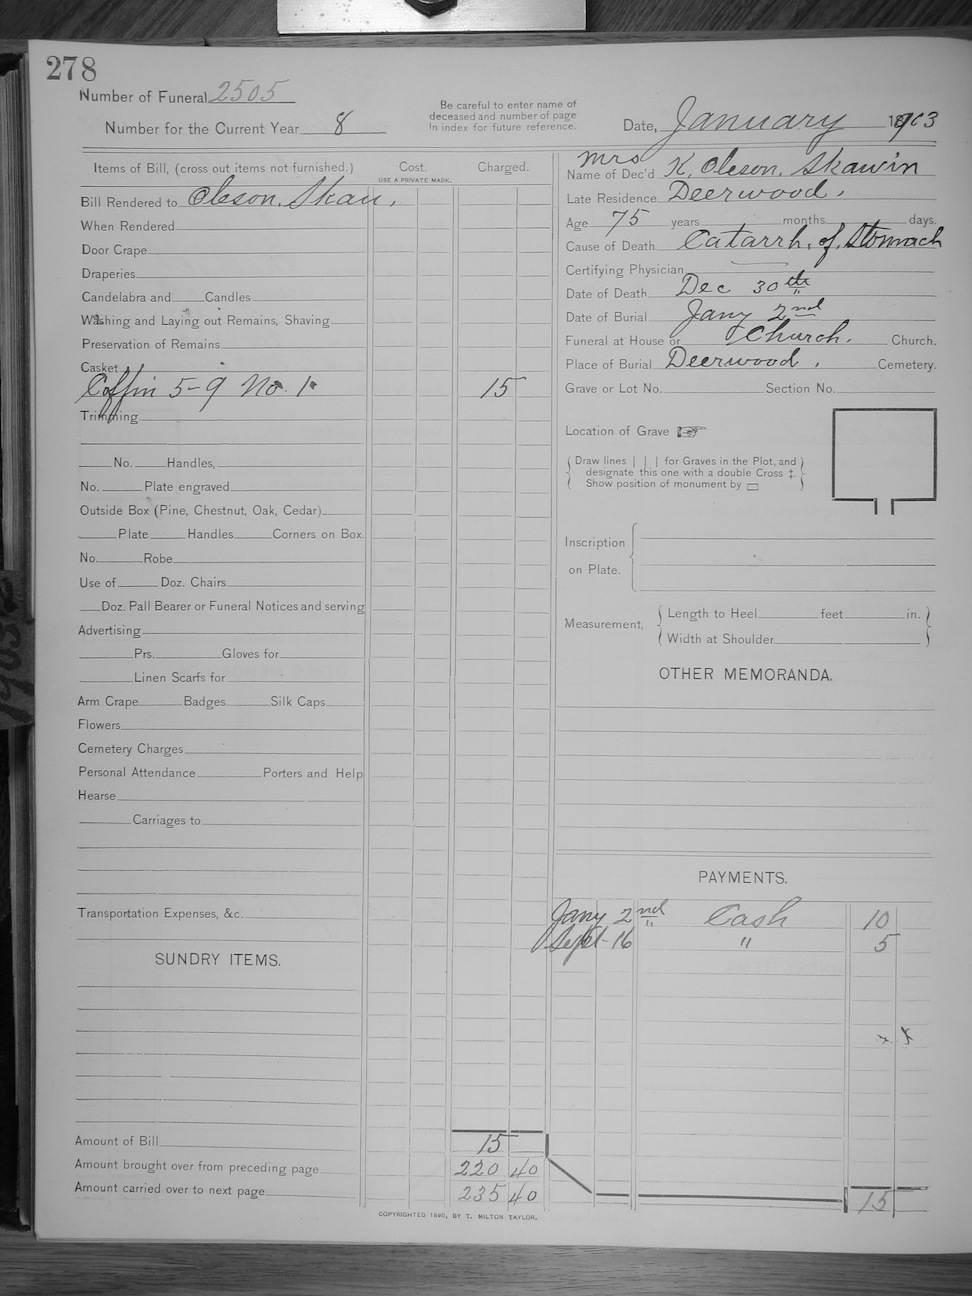 278
Number of Funeral 2505
Number for the Current Year 8
Be careful to enter name of
deceased and number of page
in index for future reference.
Date, January 1903
Items of Bill, (cross out items not furnished.) Cost. Charged.
USE A PRIVATE MARK.
Bill Rendered to Oleson, Skau,
When Rendered
Door Crape
Draperies
Candelabra and Candles
Washing and Laying out Remains, Shaving
Preservation of Remains
Casket
Coffin 5-9 No. 1 15
Trimming
No. Handles,
No. Plate engraved
Outside Box (Pine, Chestnut, Oak, Cedar)
Plate Handles Corners on Box.
No. Robe
Use of Doz. Chairs
Doz. Pall Bearer or Funeral Notices and serving
Advertising
Prs. Gloves for
Linen Scarfs for
Arm Crape Badges Silk Caps
Flowers
Cemetery Charges
Personal Attendance Porters and Help
Hearse
Carriages to
Transportation Expenses, &c.
SUNDRY ITEMS.
Amount of Bill 15
Amount brought over from preceding page 220 40
Amount carried over to next page 235 40
COPYRIGHTED 1890, BY T. MILTON TAYLOR.
Mrs
Name of Dec'd K. Oleson, Skawin
Late Residence Deerwood.
Age 75 years months days.
Cause of Death Catarrh, of, Stomach
Certifying Physician
Date of Death Dec 30th
Date of Burial Jany 2nd
Funeral at House or Church. Church.
Place of Burial Deerwood, Cemetery.
Grave or Lot No. Section No.
Location of Grave ☞
Draw lines | | | for Graves in the Plot, and
designate this one with a double Cross ‡.
Show position of monument by ▭
Inscription
on Plate.
Measurement, Length to Heel feet in.
Width at Shoulder
OTHER MEMORANDA.
PAYMENTS.
Jany 2nd Cash 10
Sept 16 " 5
x x
15